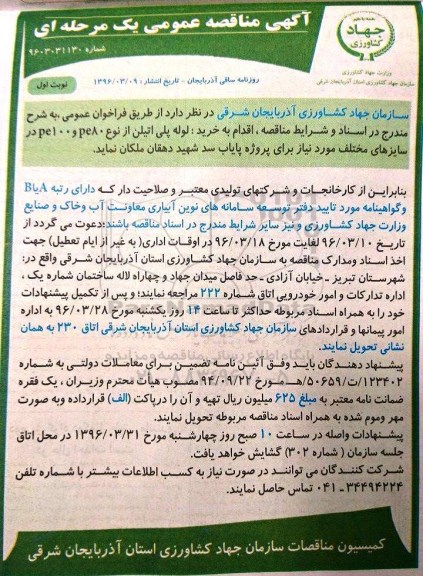 آگهی مناقصه عمومی یک مرحله ای
شماره ۹۶۰۳۰۳۱۱۳۰
جهاد
کشاورزی
وزارت جهاد کشاورزی
سازمان جهاد کشاورزی استان آذربایجان شرقی
روزنامه ساقی آذربایجان - تاریخ انتشار : ۱۳۹۶/۰۳/۰۹
نوبت اول
سازمان جهاد کشاورزی آذربایجان شرقی در نظر دارد از طریق فراخوان عمومی ،به شرح
مندرج در اسناد و شرایط مناقصه ، اقدام به خرید : لوله پلی اتیلن از نوع pe۸۰ و pe۱۰۰ در
سایزهای مختلف مورد نیاز برای پروژه پایاب سد شهید دهقان ملکان نماید.
بنابراین از کارخانجات و شرکتهای تولیدی معتبر و صلاحیت دار که دارای رتبه A یا B
وگواهینامه مورد تایید دفتر توسعه سامانه های نوین آبیاری معاونت آب وخاک و صنایع
وزارت جهاد کشاورزی و نیز سایر شرایط مندرج در اسناد مناقصه باشند؛دعوت می گردد از
تاریخ ۹۶/۰۳/۱۰ لغایت مورخ ۹۶/۰۳/۱۸ در اوقات اداری( به غیر از ایام تعطیل) جهت
اخذ اسناد ومدارک مناقصه به سازمان جهاد کشاورزی استان آذربایجان شرقی واقع در:
شهرستان تبریز ـ خیابان آزادی ـ حد فاصل میدان جهاد و چهاراه لاله ساختمان شماره یک ،
اداره تدارکات و امور خودرویی اتاق شماره ۲۲۲ مراجعه نمایند؛ و پس از تکمیل پیشنهادات
خود را به همراه اسناد مربوطه حداکثر تا ساعت ۱۴ روز یکشنبه مورخ ۹۶/۰۳/۲۸ به اداره
امور پیمانها و قراردادهای سازمان جهاد کشاورزی استان آذربایجان شرقی اتاق ۲۳۰ به همان
نشانی تحویل نمایند.
پیشنهاد دهندگان باید وفق آئین نامه تضمین برای معاملات دولتی به شماره
۱۲۳۴۰۲/ت/۵۰۶۵۹هـ مورخ ۹۴/۰۹/۲۲ مصوب هیأت محترم وزیران ، یک فقره
ضمانت نامه معتبر به مبلغ ۶۲۵ میلیون ریال تهیه و آن را درپاکت (الف) قرارداده وبه صورت
مهر وموم شده به همراه اسناد مناقصه مربوطه تحویل نمایند.
پیشنهادات واصله در ساعت ۱۰ صبح روز چهارشنبه مورخ ۱۳۹۶/۰۳/۳۱ در محل اتاق
جلسه سازمان ( شماره ۳۰۲) گشایش خواهد یافت.
شرکت کنندگان می توانند در صورت نیاز به کسب اطلاعات بیشتر با شماره تلفن
۳۴۴۹۴۲۲۴ ـ ۰۴۱ تماس حاصل نمایند.
کمیسیون مناقصات سازمان جهاد کشاورزی استان آذربایجان شرقی